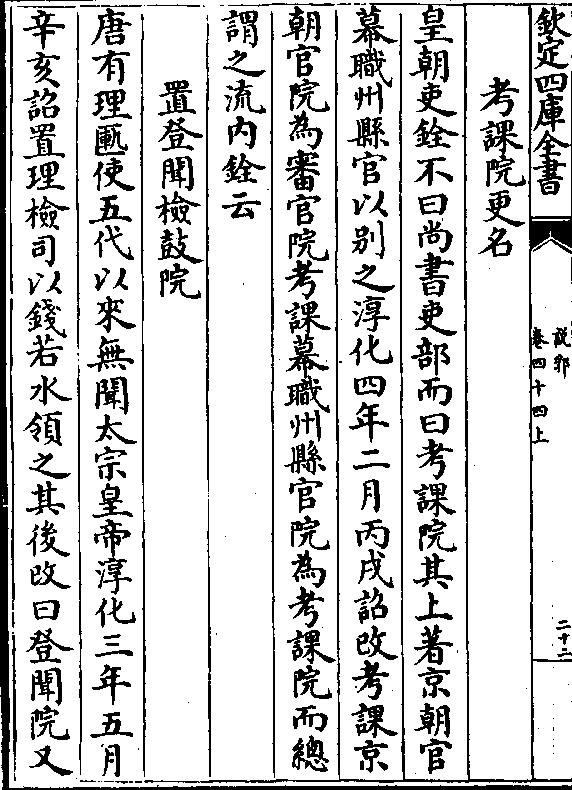 欽定四庫全書
說郛
卷四十四上
二十二
考課院更名
皇朝吏銓不曰尚書吏部而曰考課院其上著京朝官
幕職州縣官以別之淳化四年二月丙戌詔改考課京
朝官院為審官院考課幕職州縣官院為考課院而總
謂之流内銓云
置登聞檢鼓院
唐有理匭使五代以來無聞太宗皇帝淳化三年五月
辛亥詔置理檢司以錢若水領之其後改曰登聞院又